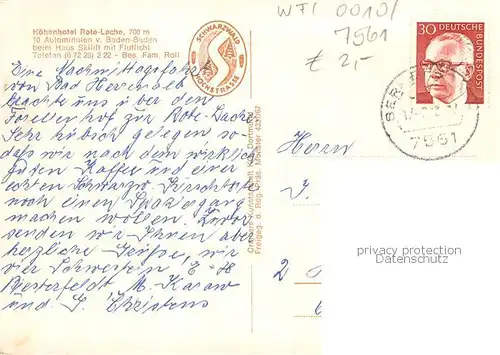 Höhenhotel Rote-Lache, 700 m
10 Autominuten v. Baden-Baden
beim Haus Skilift mit Flutlicht
Telefon (0 72 28) 2 22 - Bes. Fam. Roll
SCHWARZWALD
HOCHSTRASSE
WF1 0010/
7561
£ 2,-
30 DEUTSCHE
BUNDESPOST
7561
Eine Nachmittagsfahrt
von Bad Herrenalb
brachte uns über den
Forellenhof zur Rote-Lache
Sehr hübsch gelegen so-
daß wir nach dem wirklich
guten Kaffee und einer
echten Schwarzw. Kirschtorte
noch einen Spaziergang
machen wollen. Zuvor
senden wir Ihnen aber
herzliche Grüße, wir
vier Schwestern E. H
Biesterfeldt M. Kasow
und G. Christens
Freigeg. d. Reg. Präs. Münster
Herrn
2
privacy protection
Datenschutz